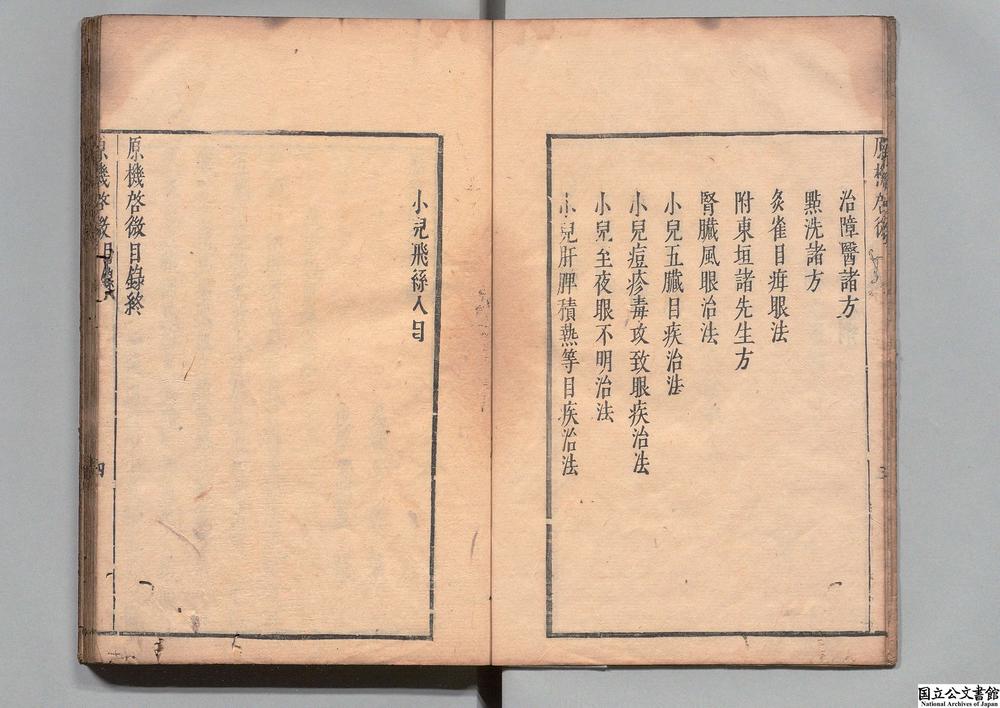 原機啓微
治障醫諸方
點洗諸方
灸雀目疳眼法
附東垣諸先生方
腎臟風眼治法
小兒五臟目疾治法
小兒痘疹毒攻致眼疾治法
小兒至夜眼不明治法
小兒肝脾積熱等目疾治法
小兒飛絲入目
原機啓微目錄終
原機啓微目錄
四
国立公文書館
National Archives of Japan